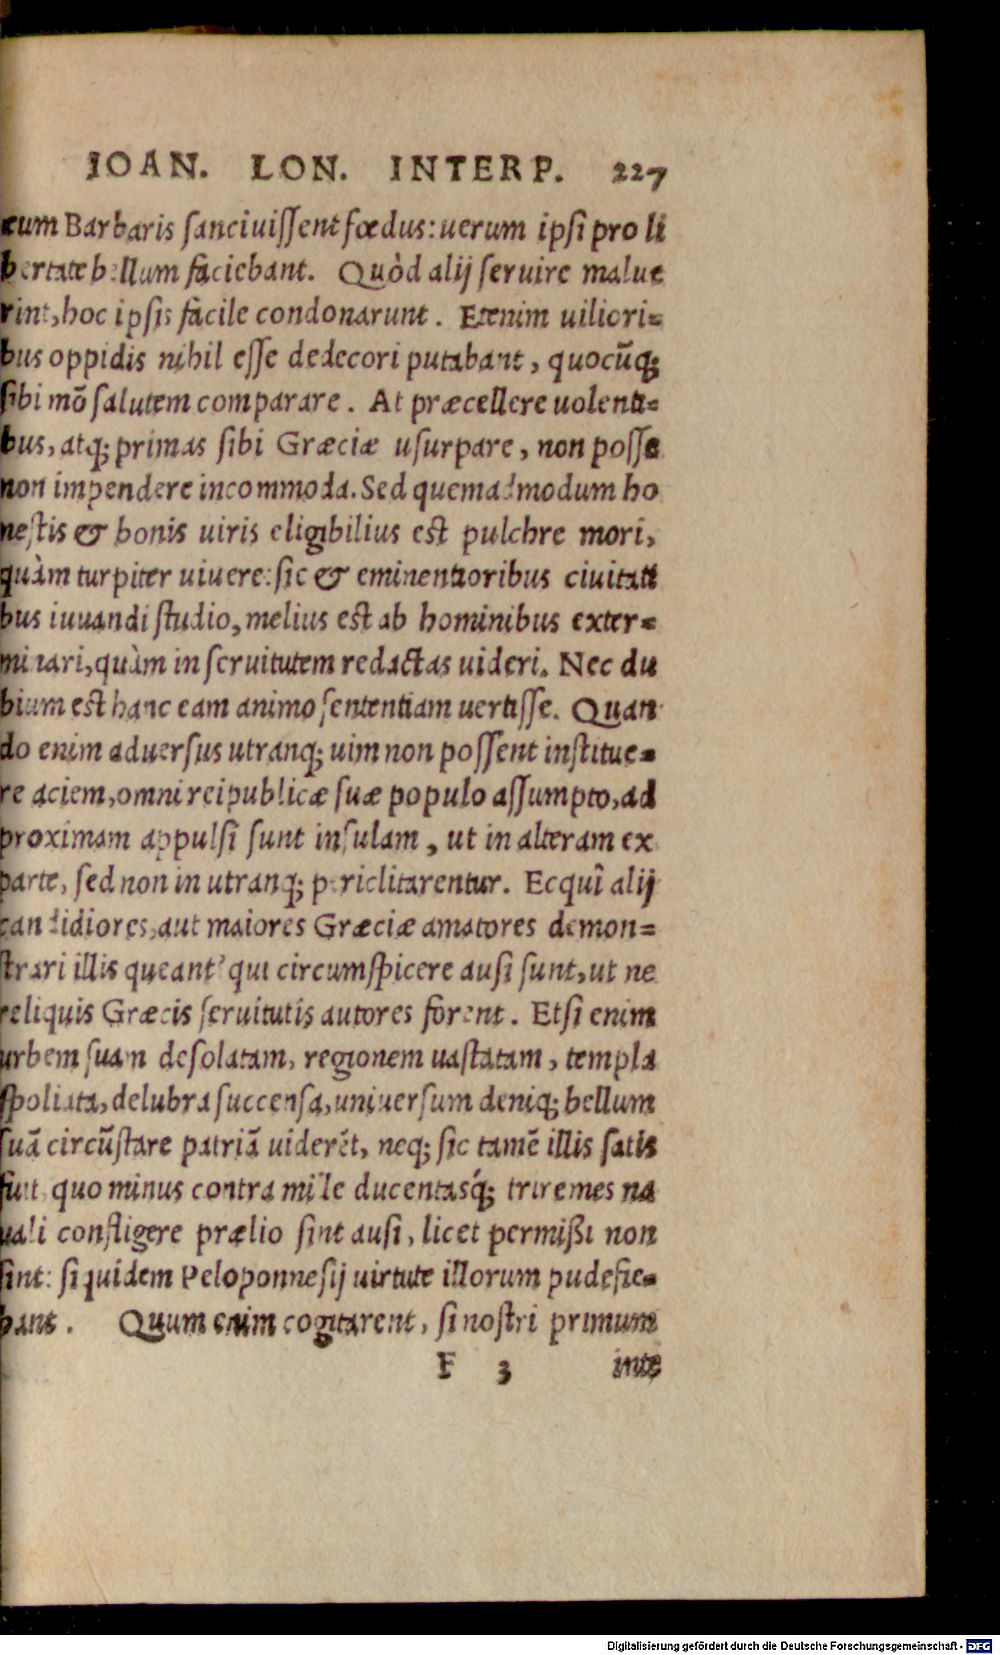 IOAN. LON. INTERP. 227
cum Barbaris sanciuissent fœdus: uerum ipsi pro li
bertate bellum faciebant. Quòd alij seruire malue
rint, hoc ipsis facile condonarunt. Etenim uiliori=
bus oppidis nihil esse dedecori putabant, quocũq;
sibi mõ salutem comparare. At præcellere uolenti=
bus, atq; primas sibi Græciæ usurpare, non posse
non impendere incommoda. Sed quemadmodum ho
nestis & bonis uiris eligibilius est pulchre mori,
quàm turpiter uiuere: sic & eminentioribus ciuitati
bus iuuandi studio, melius est ab hominibus exter=
minari, quàm in seruitutem redactas uideri. Nec du
bium est hanc eam animo sententiam uertisse. Quan
do enim aduersus utranq; uim non possent institue=
re aciem, omni reipublicæ suæ populo assumpto, ad
proximam appulsi sunt insulam, ut in alteram ex
parte, sed non in utranq; periclitarentur. Ecquî alij
candidiores, aut maiores Græciæ amatores demon=
strari illis queant? qui circumspicere ausi sunt, ut ne
reliquis Græcis seruitutis autores forent. Etsi enim
urbem suam desolatam, regionem uastatam, templa
spoliata, delubra succensa, uniuersum deniq; bellum
suã circũstare patriã uiderẽt, neq; sic tamẽ illis satis
fuit, quo minus contra mille ducentasq́; triremes na
uali confligere prælio sint ausi, licet permißi non
sint: siquidem Peloponnesij uirtute illorum pudefie=
bant. Quum enim cogitarent, si nostri primum
F 3 inte
Digitalisierung gefördert durch die Deutsche Forschungsgemeinschaft - DFG